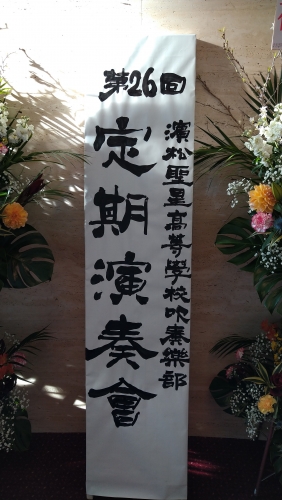 第26回
濱松聖星高等學校吹奏樂部
定期演奏會